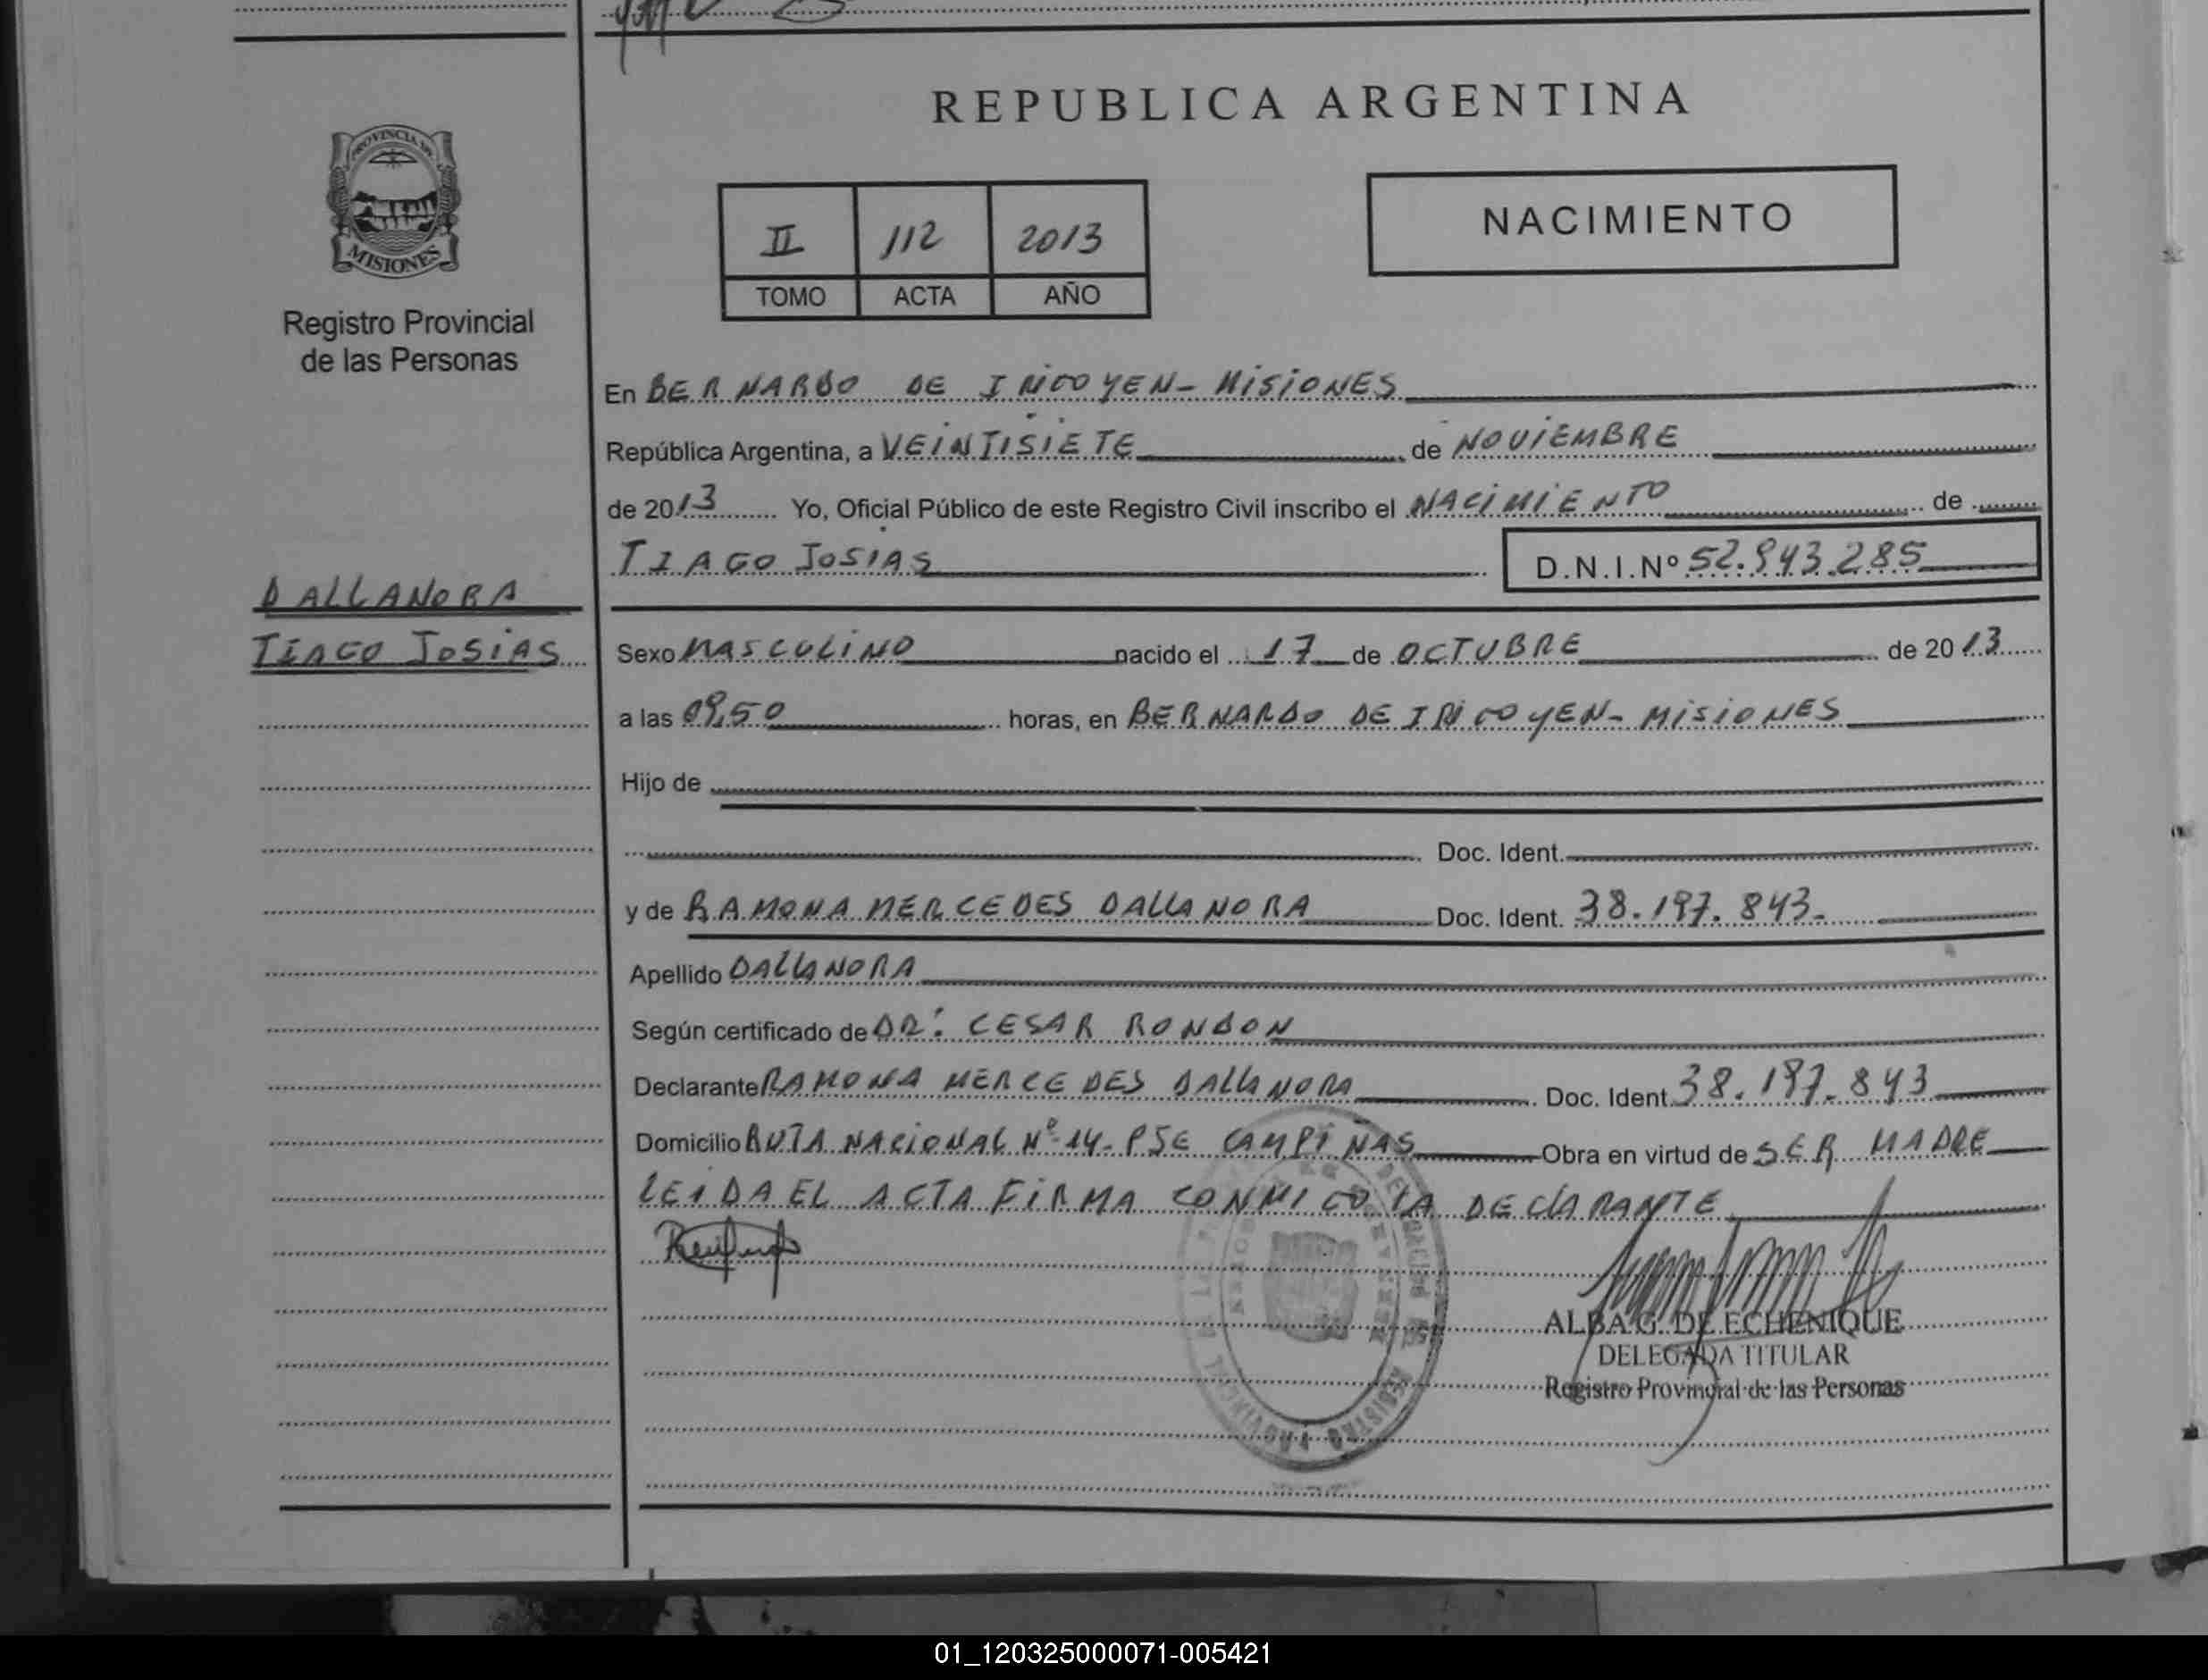 REPUBLICA ARGENTINA
PROVINCIA DE
MISIONES
Registro Provincial
de las Personas
II 112 2013
TOMO ACTA AÑO
NACIMIENTO
En BERNARDO DE IRIGOYEN - MISIONES
República Argentina, a VEINTISIETE de NOVIEMBRE
de 2013 Yo, Oficial Público de este Registro Civil inscribo el NACIMIENTO de
TIAGO JOSIAS D.N.I.Nº 52.943.285
DALLANORA
TIAGO JOSIAS
Sexo MASCULINO nacido el 17 de OCTUBRE de 2013
a las 09,50 horas, en BERNARDO DE IRIGOYEN - MISIONES
Hijo de
Doc. Ident.
y de RAMONA MERCEDES DALLANORA Doc. Ident. 38.197.843.
Apellido DALLANORA
Según certificado de DR: CESAR RONDON
Declarante RAMONA MERCEDES DALLANORA Doc. Ident. 38.197.843
Domicilio RUTA NACIONAL Nº 14 - PSE CAMPINAS Obra en virtud de SER MADRE
LEIDA EL ACTA FIRMA CONMIGO LA DECLARANTE
ALBA G. DE ECHENIQUE
DELEGADA TITULAR
Registro Provincial de las Personas
REGISTRO PROVINCIAL
01_120325000071-005421